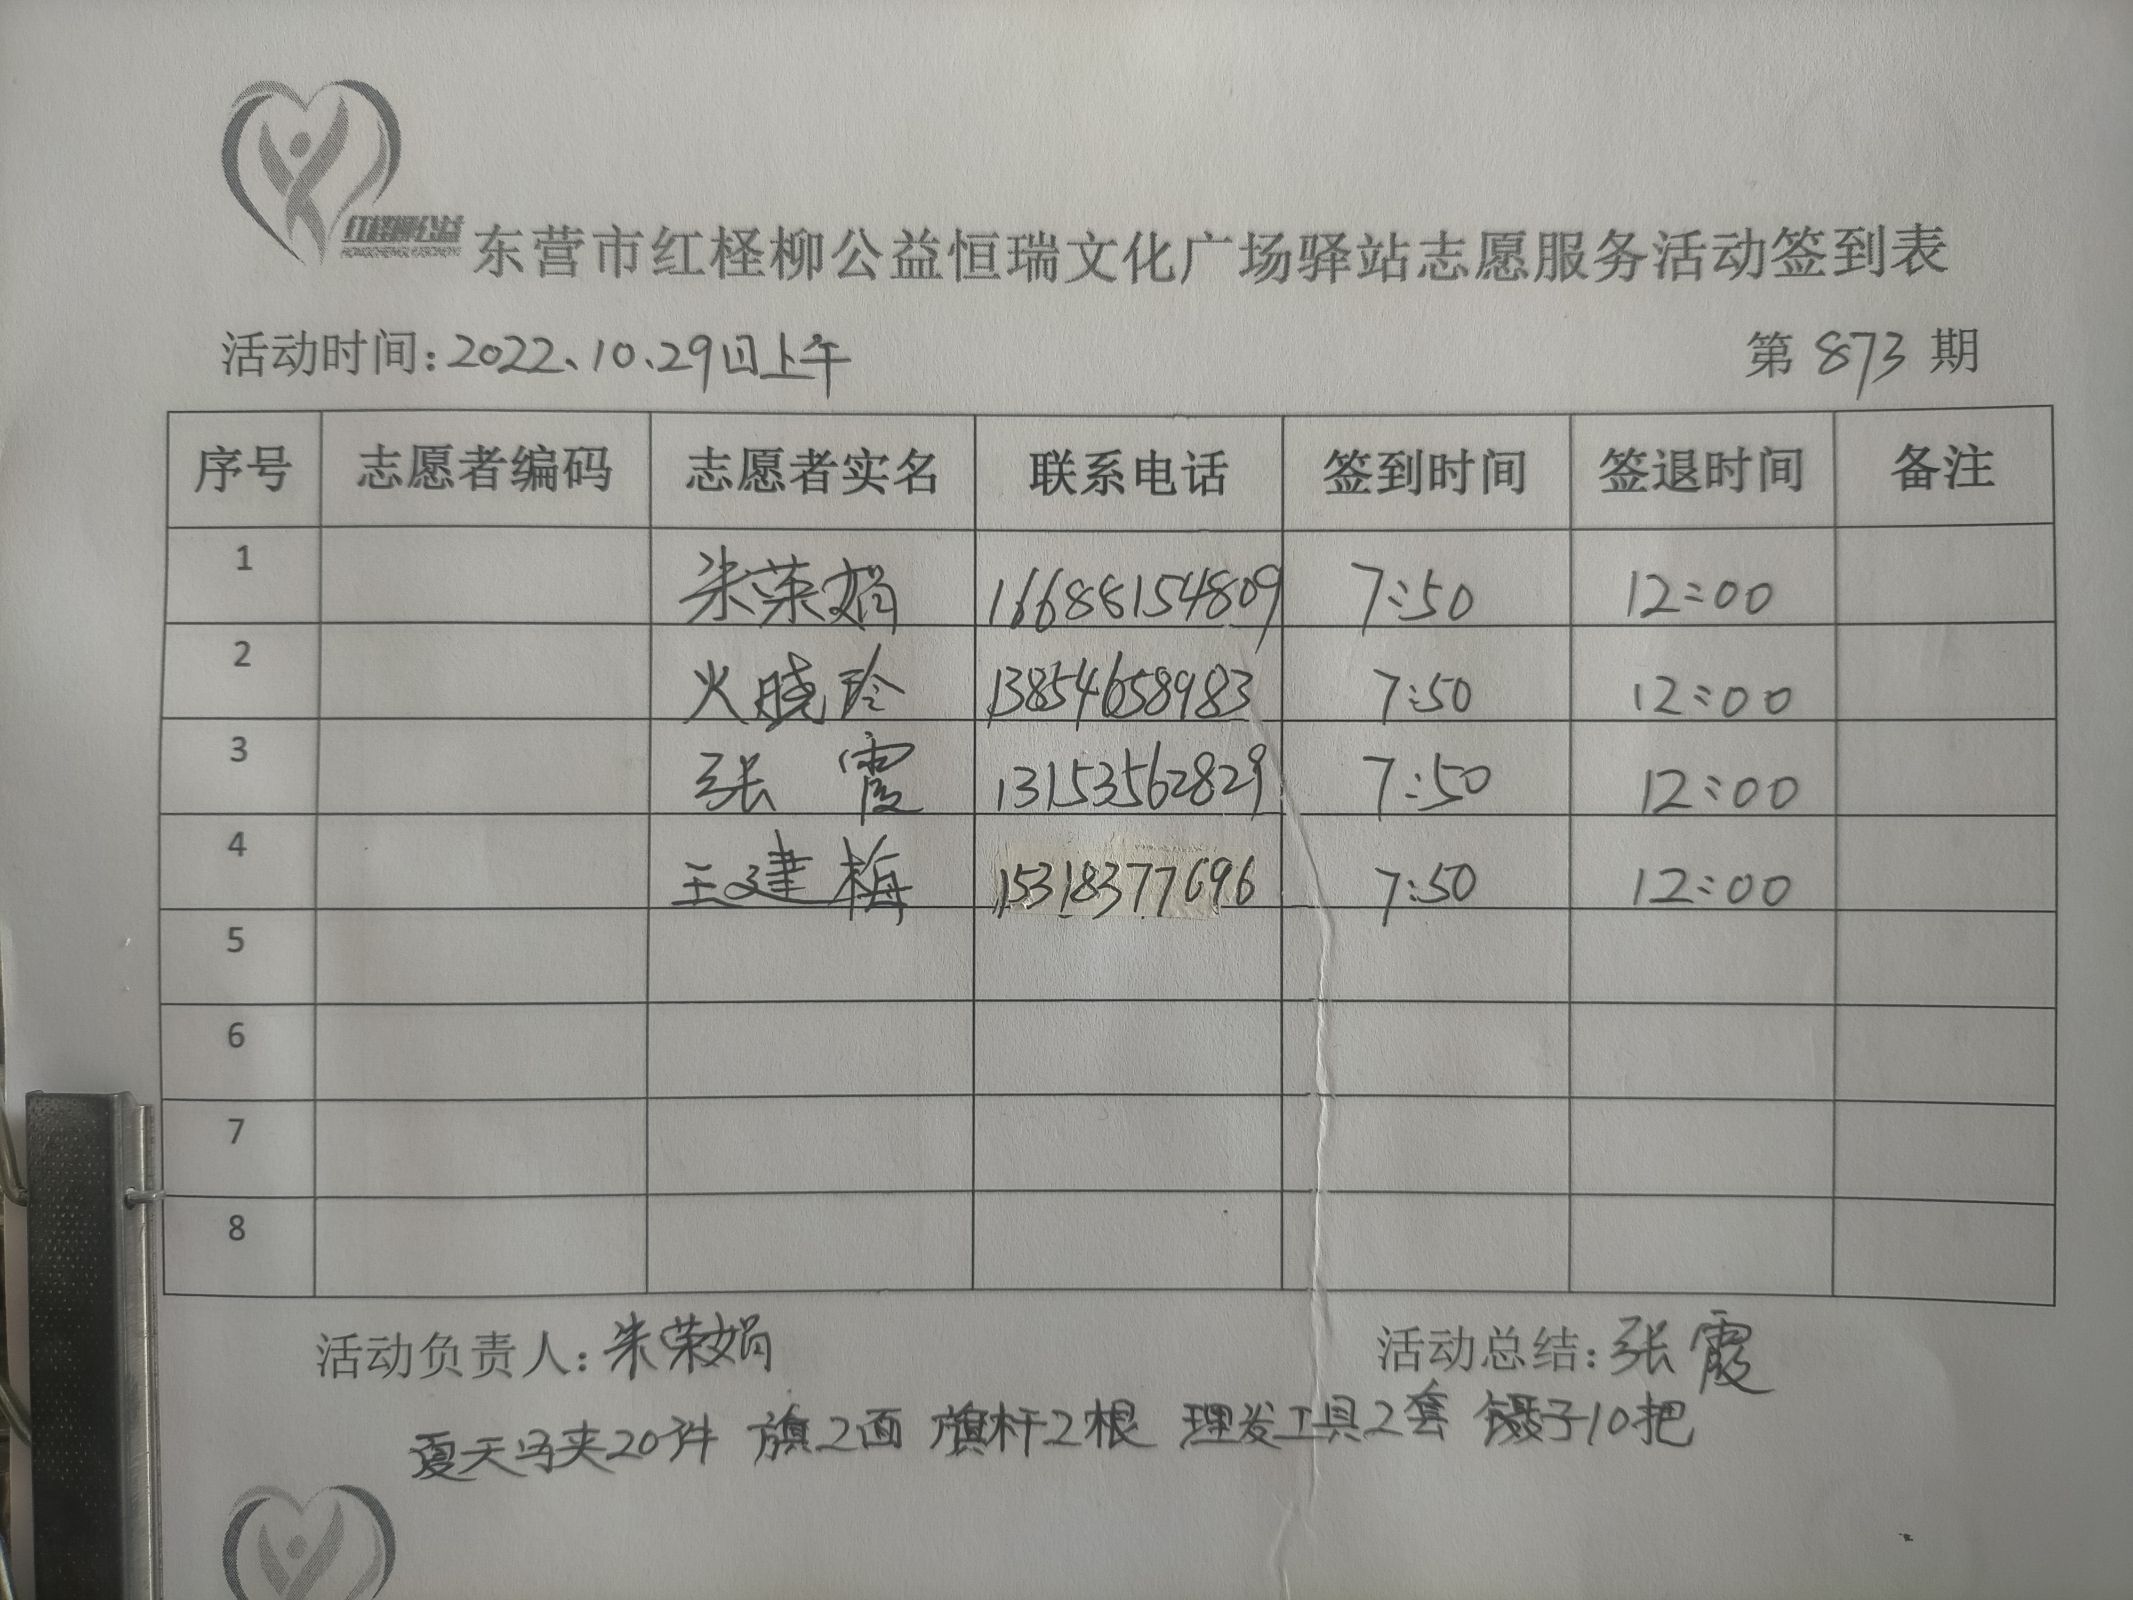 红柽柳公益
东营市红柽柳公益恒瑞文化广场驿站志愿服务活动签到表
活动时间：2022、10、29日上午 第 873 期
序号 志愿者编码 志愿者实名 联系电话 签到时间 签退时间 备注
1 朱荣娟 16688154809 7:50 12:00
2 火晓玲 13854658983 7:50 12:00
3 张霞 13153562829 7:50 12:00
4 王建梅 15318377696 7:50 12:00
5
6
7
8
活动负责人：朱荣娟 活动总结：张霞
夏天马夹20件 旗2面 旗杆2根 理发工具2套 镊子10把